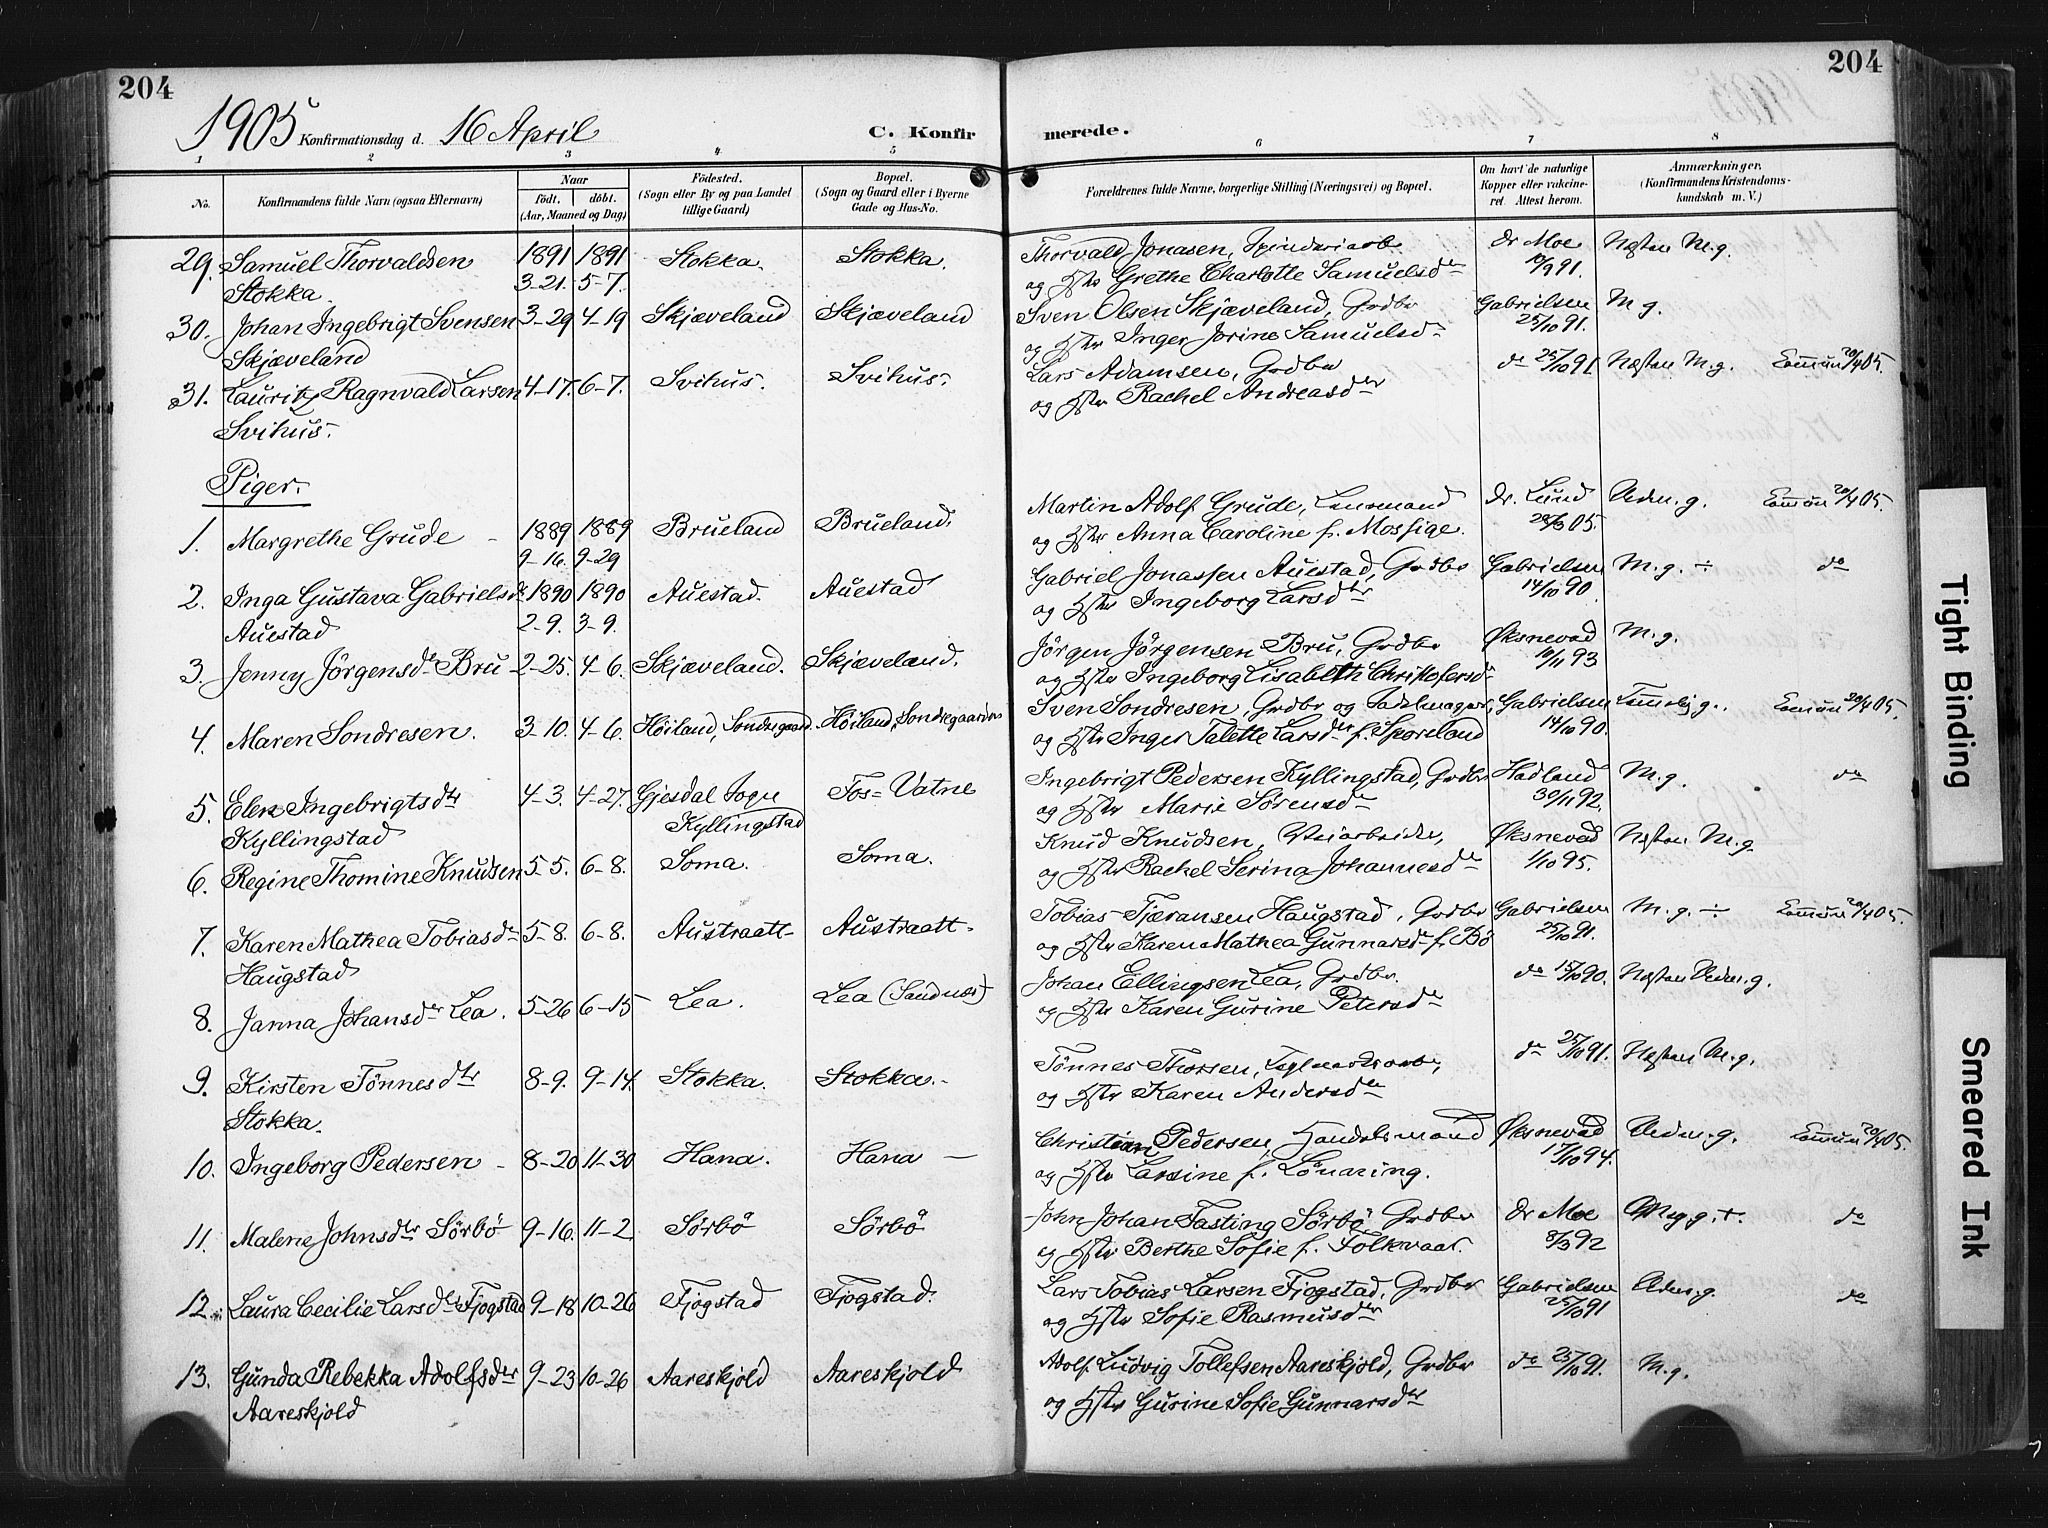 204
204
1905 Konfirmationsdag d. 16 April
C. Konfirmerede.
1 2 3 4 5 6 7 8
No.
Konfirmandens fulde Navn (ogsaa Efternavn)
Naar
födt. döbt.
(Aar, Maaned og Dag)
Födested.
(Sogn eller By og paa Landet tillige Gaard)
Bopæl.
(Sogn og Gaard eller i Byerne Gade og Hus-No.
Forældrenes fulde Navne, borgerlige Stilling (Næringsvei) og Bopæl.
Om havt de naturlige Kopper eller vakcineret. Attest herom.
Anmærkninger.
(Konfirmandens Kristendomskundskab m. V.)
29. Samuel Thorvaldsen 1891 1891 Stokka. Stokka. Thorvald Jonasen, Spinderiarb. dr Moe Næsten M.g.
Stokka. 3-21. 5-7. og Hstr Grethe Charlotte Samuelsdr 10/9 91.
30. Johan Ingebrigt Svensen 3-29 4-19 Skjæveland Skjæveland Sven Olsen Skjæveland, Grdbr Gabrielsen M.g.
Skjæveland og Hstr Inger Jorine Samuelsdr 25/10 91.
31. Lauritz Ragnvald Larsen 4-17. 6-7. Svihus. Svihus. Lars Adamsen, Grdbr do 25/10 91. Næsten M.g. 20/4 05.
Svihus. og Hstr Rachel Andreasdtr
Piger.
1. Margrethe Grude 1889 1889 Brueland Brueland. Martin Adolf Grude, Lensmand dr. Lund Udm.g. 20/4 05.
9-16. 9-29 og Hstr Anna Caroline f. Mossige. 28/3 05.
2. Inga Gustava Gabrielsdr 1890 1890 Auestad. Auestad Gabriel Jonassen Auestad, Grdbr Gabrielsen M.g. ÷ do
Auestad 2-9. 3-9. og Hstr Ingeborg Larsdtr 14/10 90.
3. Jenny Jörgensdr Bru 2-25. 4-6. Skjæveland. Skjæveland. Jörgen Jörgensen Bru, Grdbr Øksnevad M.g.
og Hstr Ingeborg Lisabeth Christofersdr 10/11 93
4. Maren Sondresen. 3-10. 4-6. Höiland, Sondregaard. Höiland, Sondregaarden Sven Sondresen, Grdbr og Sadelmager, Gabrielsen Temmelig g. 20/4 05.
og Hstr Inger Talette Larsdtr f. Skoreland 14/10 90.
5. Elen Ingebrigtsdtr 4-3. 4-27. Gjesdal Sogn Fos-Vatne Ingebrigt Pedersen Kyllingstad, Grdbr Hadland M.g. do
Kyllingstad Kyllingstad og Hstr Marie Sörensdr 30/11 92.
6. Regine Thomine Knudsen 5-5. 6-8. Soma. Soma. Knud Knudsen, Veiarbeider, Øksnevad Næsten M.g.
og Hstr Rachel Serina Johannesdr 1/10 95.
7. Karen Mathea Tobiasdr 5-8. 6-8. Austraatt- Austraatt- Tobias Tjæransen Haugstad, Grdbr Gabrielsen M.g. ÷ 20/4 05.
Haugstad og Hstr Karen Mathea Gunnarsdr f. Bö 25/10 91.
8. Janna Johansdtr Lea. 5-26 6-15 Lea. Lea (Sandnes) Johan Ellingsen Lea, Grdbr. do 15/10 90. Næsten Udm.g.
og Hstr Karen Gurine Petersdr
9. Kirsten Tönnesdtr 8-9. 9-14. Stokka. Stokka. Tönnes Thorsen, Teglverksarb, do 25/10 91. Næsten M.g.
Stokka. og Hstr Karen Andersdr
10. Ingeborg Pedersen 8-20 11-30 Hana. Hana Christian Pedersen, Handelsmand Øksnevad Udm.g. 20/4 05.
og Hstr Larsine f. Lönaring. 17/10 94.
11. Malene Johnsdtr Sörbö 9-16. 11-2. Sörbö Sörbö John Johan Tasting Sörbö, Grdbr dr Moe Meg g. + do
og Hstr Berthe Sofie f. Folkvaar. 8/3 92
12. Laura Cecilie Larsdtr Fjogstad 9-18 10-26 Fjogstad Fjogstad. Lars Tobias Larsen Fjogstad, Grdbr Gabrielsen Udm.g. do
og Hstr Sofie Rasmusdtr 25/10 91
13. Gunda Rebekka Adolfsdtr 9-23 10-26 Aareskjold Aareskjold Adolf Ludvig Tollefsen Aareskjold, Grdbr do 25/10 91. M.g.
Aareskjold og Hstr Gurine Sofie Gunnarsdtr
Tight Binding
Smeared Ink